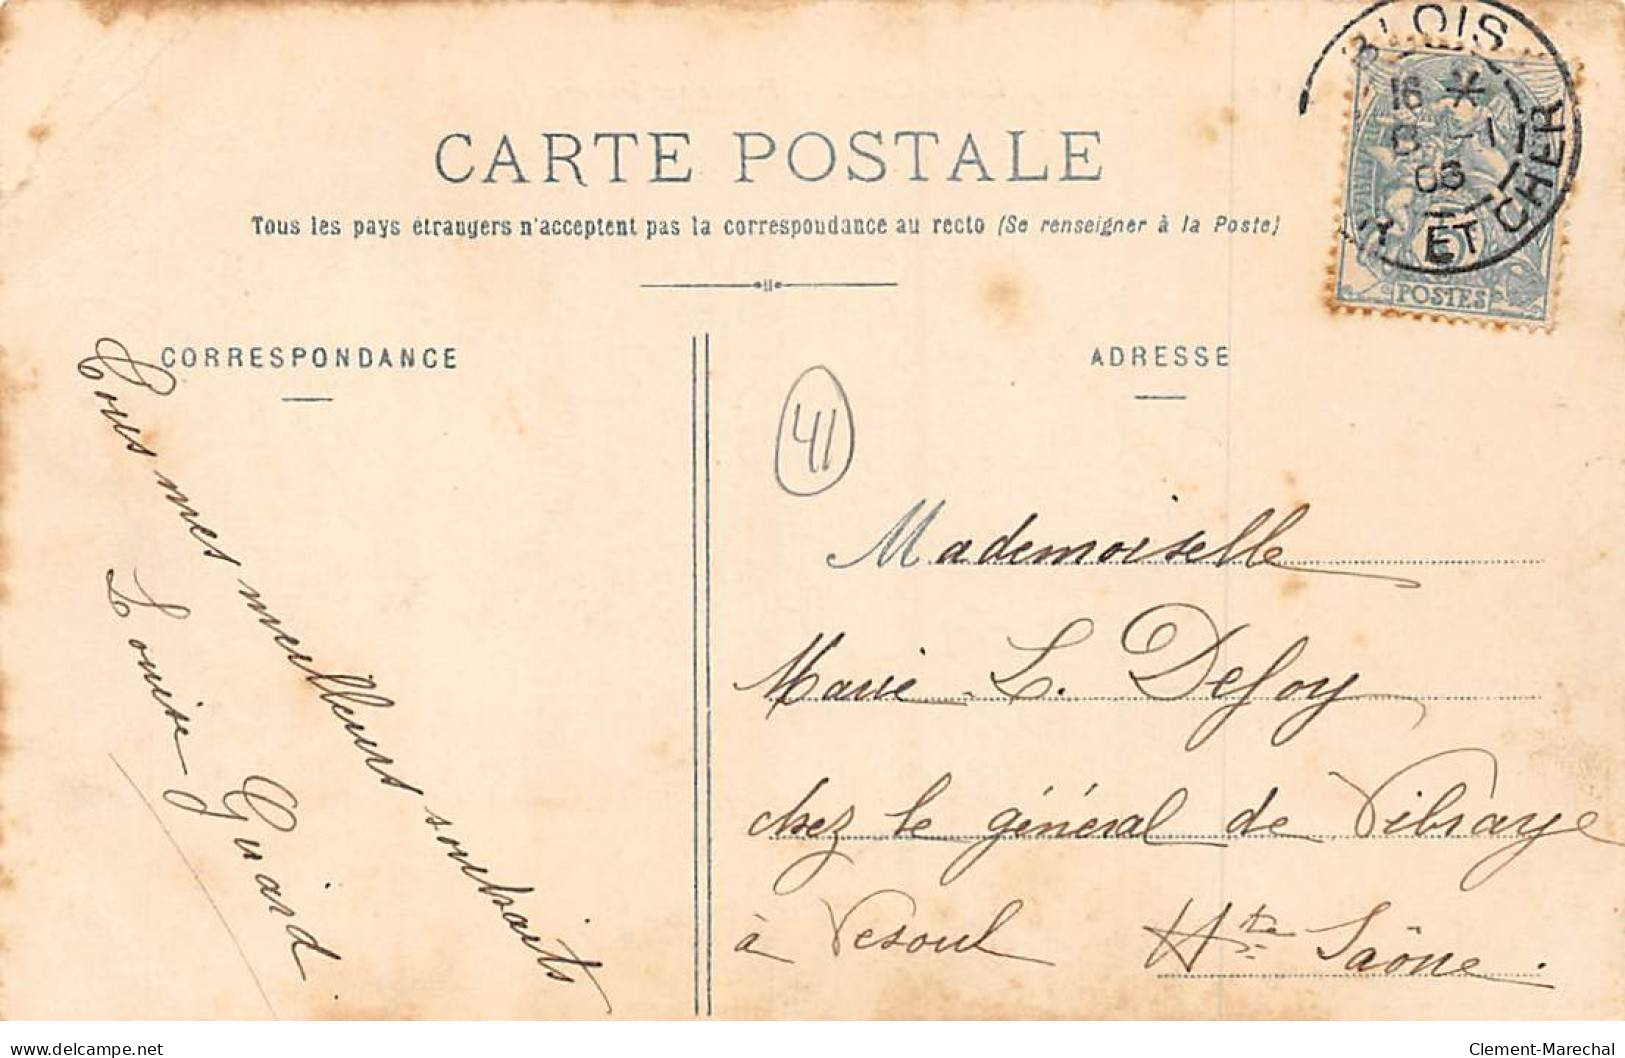 BLOIS
18 *
03
ET CHER
POSTES
CARTE POSTALE
Tous les pays étrangers n'acceptent pas la correspondance au recto (Se renseigner à la Poste)
CORRESPONDANCE
Tous mes meilleurs souhaits
Louise Guiard.
ADRESSE
41
Mademoiselle
Marie L. Defoy
chez le général de Vibraye
à Vesoul Hte Saône.
delcampe.net
Clement-Marechal